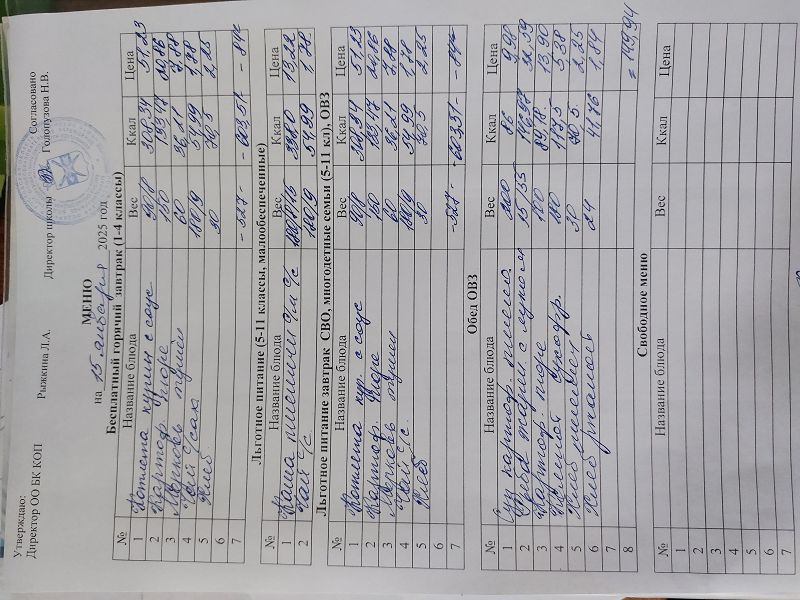 Утверждаю:
Директор ОО БК КОП Рыжкина Л.А. Директор школы Согласовано Голопузова Н.В.
МЕНЮ
на 15 января 2025 год
Бесплатный горячий завтрак (1-4 классы)
№ Название блюда Вес Ккал Цена
1 Котлета курин с соус 90/8 308,34 51,23
2 Картоф. пюре 150 133,47 20,86
3 Морковь тушён 60 36,21 7,88
4 Чай с/сах 180/9 54,99 1,78
5 Хлеб 30 70,5 2,25
6
7 -527- -603,51- -84=
Льготное питание (5-11 классы, малообеспеченные)
№ Название блюда Вес Ккал Цена
1 Каша 13,22
2 Чай с/с. 180/9 54,99 1,78
Льготное питание завтрак СВО, многодетные семьи (5-11 кл), ОВЗ
№ Название блюда Вес Ккал Цена
1 Котлета кур. с соус 90/8 308,34 51,23
2 Картоф. пюре 150 133,47 20,86
3 Морковь тушён 60 36,21 7,88
4 Чай с/с. 180/9 54,99 1,78
5 Хлеб 30 70,5 2,25
6
7 -527- -603,51- -84=
Обед ОВЗ
№ Название блюда Вес Ккал Цена
1 Суп картоф. 200 86 9,98
2 с луком
3 Картоф пюре 150 13,90
4 сухофр. 180 5,38
5 Хлеб 30 70,5 2,25
6 Хлеб ржаной 24 41,76 1,84
7
8 =149,94
Свободное меню
№ Название блюда Вес Ккал Цена
1
2
3
4
5
6
7